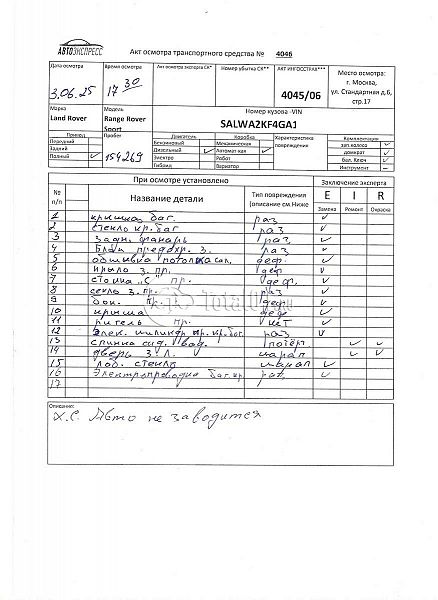 АВТОЭКСПРЕСС
Акт осмотра транспортного средства № 4046
Дата осмотра
3.06.25
Время осмотра
17 30
Акт осмотра эксперта СК*
Номер убытка СК**
АКТ ИНГОССТРАХ***
4045/06
Место осмотра:
г. Москва,
ул. Стандартная д.6,
стр.17
Марка
Land Rover
Модель
Range Rover
Sport
Номер кузова -VIN
SALWA2KF4GA1
Привод
Передний
Задний
Полный ✓
Пробег
154269
Двигатель
Бензиновый ✓
Дизельный
Электро
Гибрид
Коробка
Механическая
Автоматкая ✓
Робот
Вариатор
Характеристика
повреждения
Комментарии
зап.колесо ✓
домкрат ✓
бал. Ключ ✓
Инструмент –
При осмотре установлено
Заключение эксперта
№ п/п
Название детали
Тип повреждения
(описание см.Ниже
E I R
Замена Ремонт Окраска
1 крышка баг. раз ✓
2 стекло кр.баг раз ✓
3 задн. фонарь раз ✓
4 Блок предохр. з. раз ✓
5 обшивка потолка сал. деф. ✓
6 крыло з. пр. деф ✓
7 стойка "С" пр. деф. ✓
8 секло з. пр. раз ✓
9 бок. пр. деф ✓
10 крыша деф ✓
11 пр. нет ✓
12 Элек. цилиндр пр. кр.баг. раз ✓
13 спинка сид. вод. потёр. ✓ ✓
14 дверь з. л. царап ✓ ✓
15 лоб. стекло ✓
16 Электропроводка баг. кр. раз. ✓
17
Описание:
Х.С. Авто не заводится